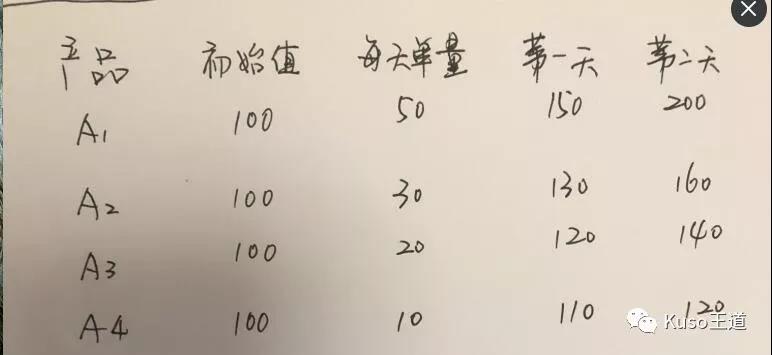 产品 初始值 每天单量 第一天 第二天
A1 100 50 150 200
A2 100 30 130 160
A3 100 20 120 140
A4 100 10 110 120
Kuso王道